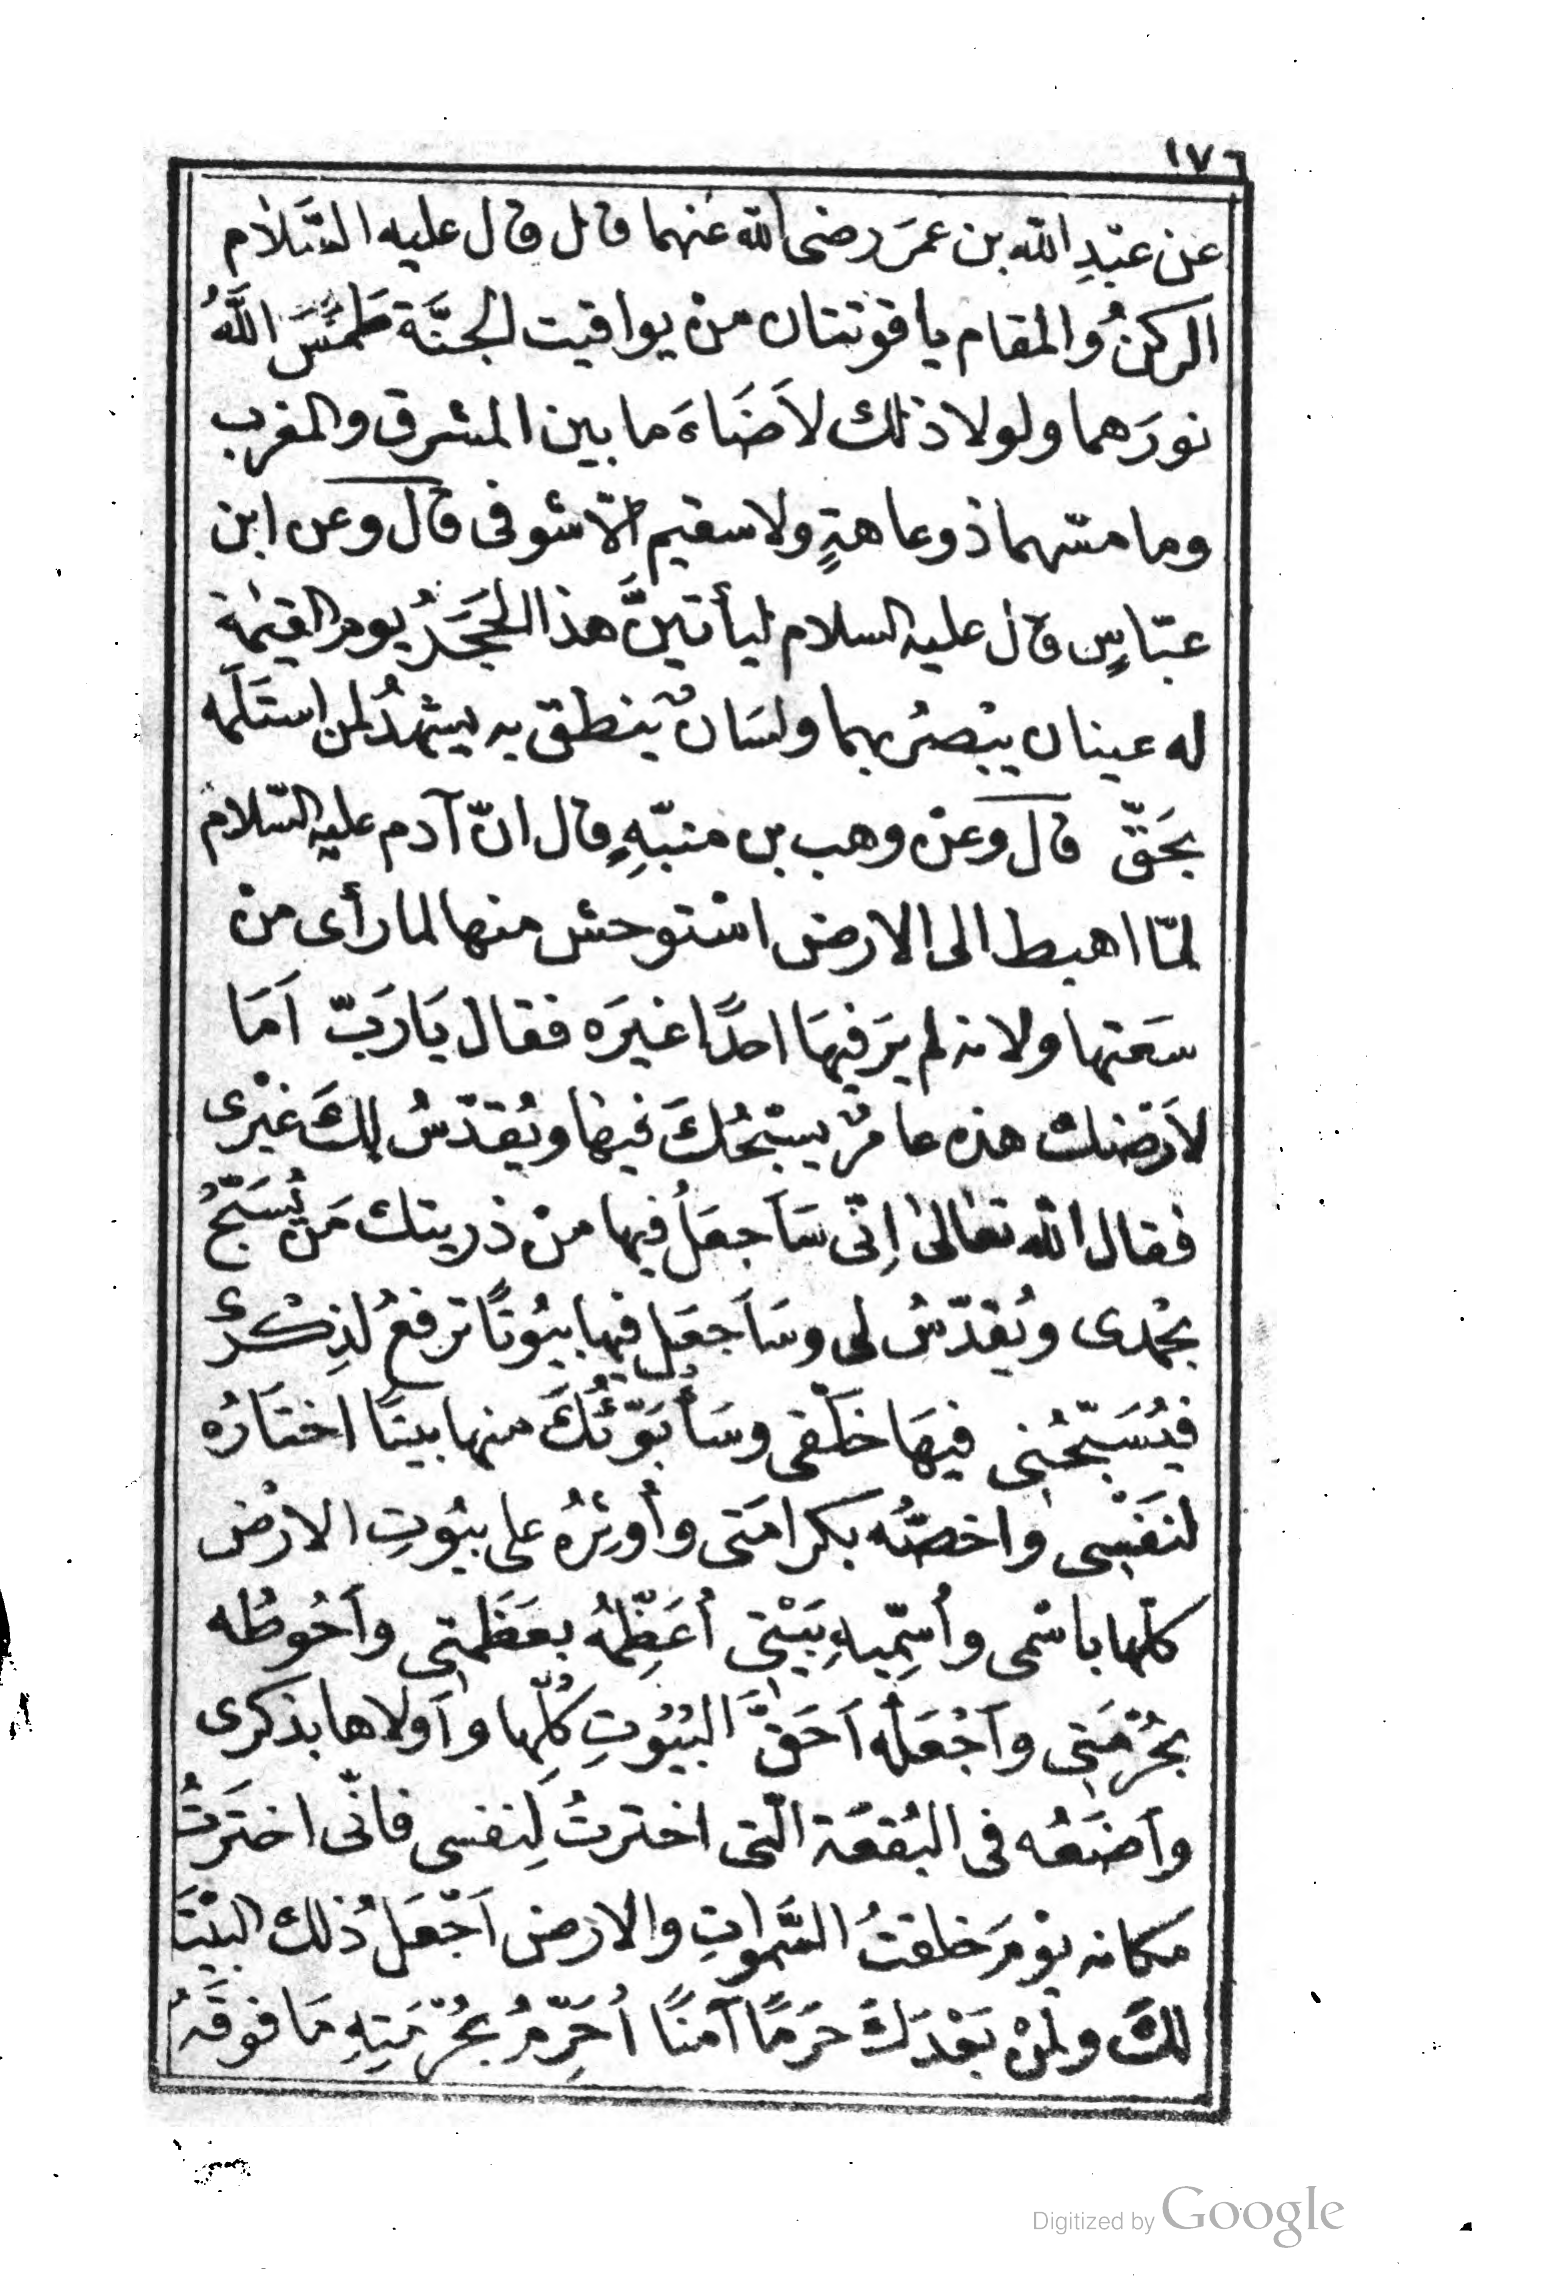 ١٧٦
عن عبْدِ الله بن عمَر رضى الله عَنهما قال قال عليه السَّلام
الركنُ والمقام ياقوتتان منْ يواقيت الجنَّة طَمَسَ اللَّهُ
نورَهما ولولا ذلك لاَضَاءَ ما بين المشرق والمغرب
وما مسّهما ذوعاهةٍ ولا سقيم الّا شوفى قال وعن ابن
عبّاسٍ قال عليه السلام ليأتينَّ هذا الحَجَرُ يوم القيٰمة
له عينان يبْصرُ بهما ولسَانٌ يَنطق به يشهدُ لمن استَلَمه
بحَقّ قال وعنْ وهب بن منبّهٍ قال انّ آدم عليه السّلام
لمّا اهبط الى الارض اسْتوحش منها لما رأى منْ
سَعَتها ولانه لم يَرَ فيهَا احدًا غيرَه فقال يَا رَبّ اَمَا
لاَرْضك هذه عامرٌ يسبّحُكَ فيها ويُقدّسُ لكَ غيْرى
فقال الله تعالىٰ اِنّى سَاَجعَلُ فيها منْ ذريتك مَن يُسَبّحُ
بحْمدى ويُقدّسُ لى وسَاَجعَل فيها بيُوتًا ترفعُ لذِكْرى
فيُسَبّحُنى فيهَا خَلْقى وسَأُبَوّئُكَ منها بيتًا اختَارُه
لنفَسْى واخصّه بكرامَتى وأُوثِرُهُ على بيُوتِ الارْض
كلّها باسْمى وأُسَمِّيهِ بَيْتى أُعَظِّمُه بعَظَمتى واَحُوطُه
بحُرْمَتى واَجْعَلُه اَحَقَّ البُيُوتِ كُلِّها واَولاها بذكرى
واَضَعُه فى البُقعَة الّتى اخترتُ لِنفسى فانّى اختَرتُ
مكانه يوْمَ خلقتُ السَّموٰاتِ والارض اَجْعَلُ ذلك البيْتَ
لكَ ولمنْ بَعْدَكَ حَرَمًا آمنًا اُحَرِّمُ بحُرْمَتِهِ مَا فوقَهُ
Digitized by Google